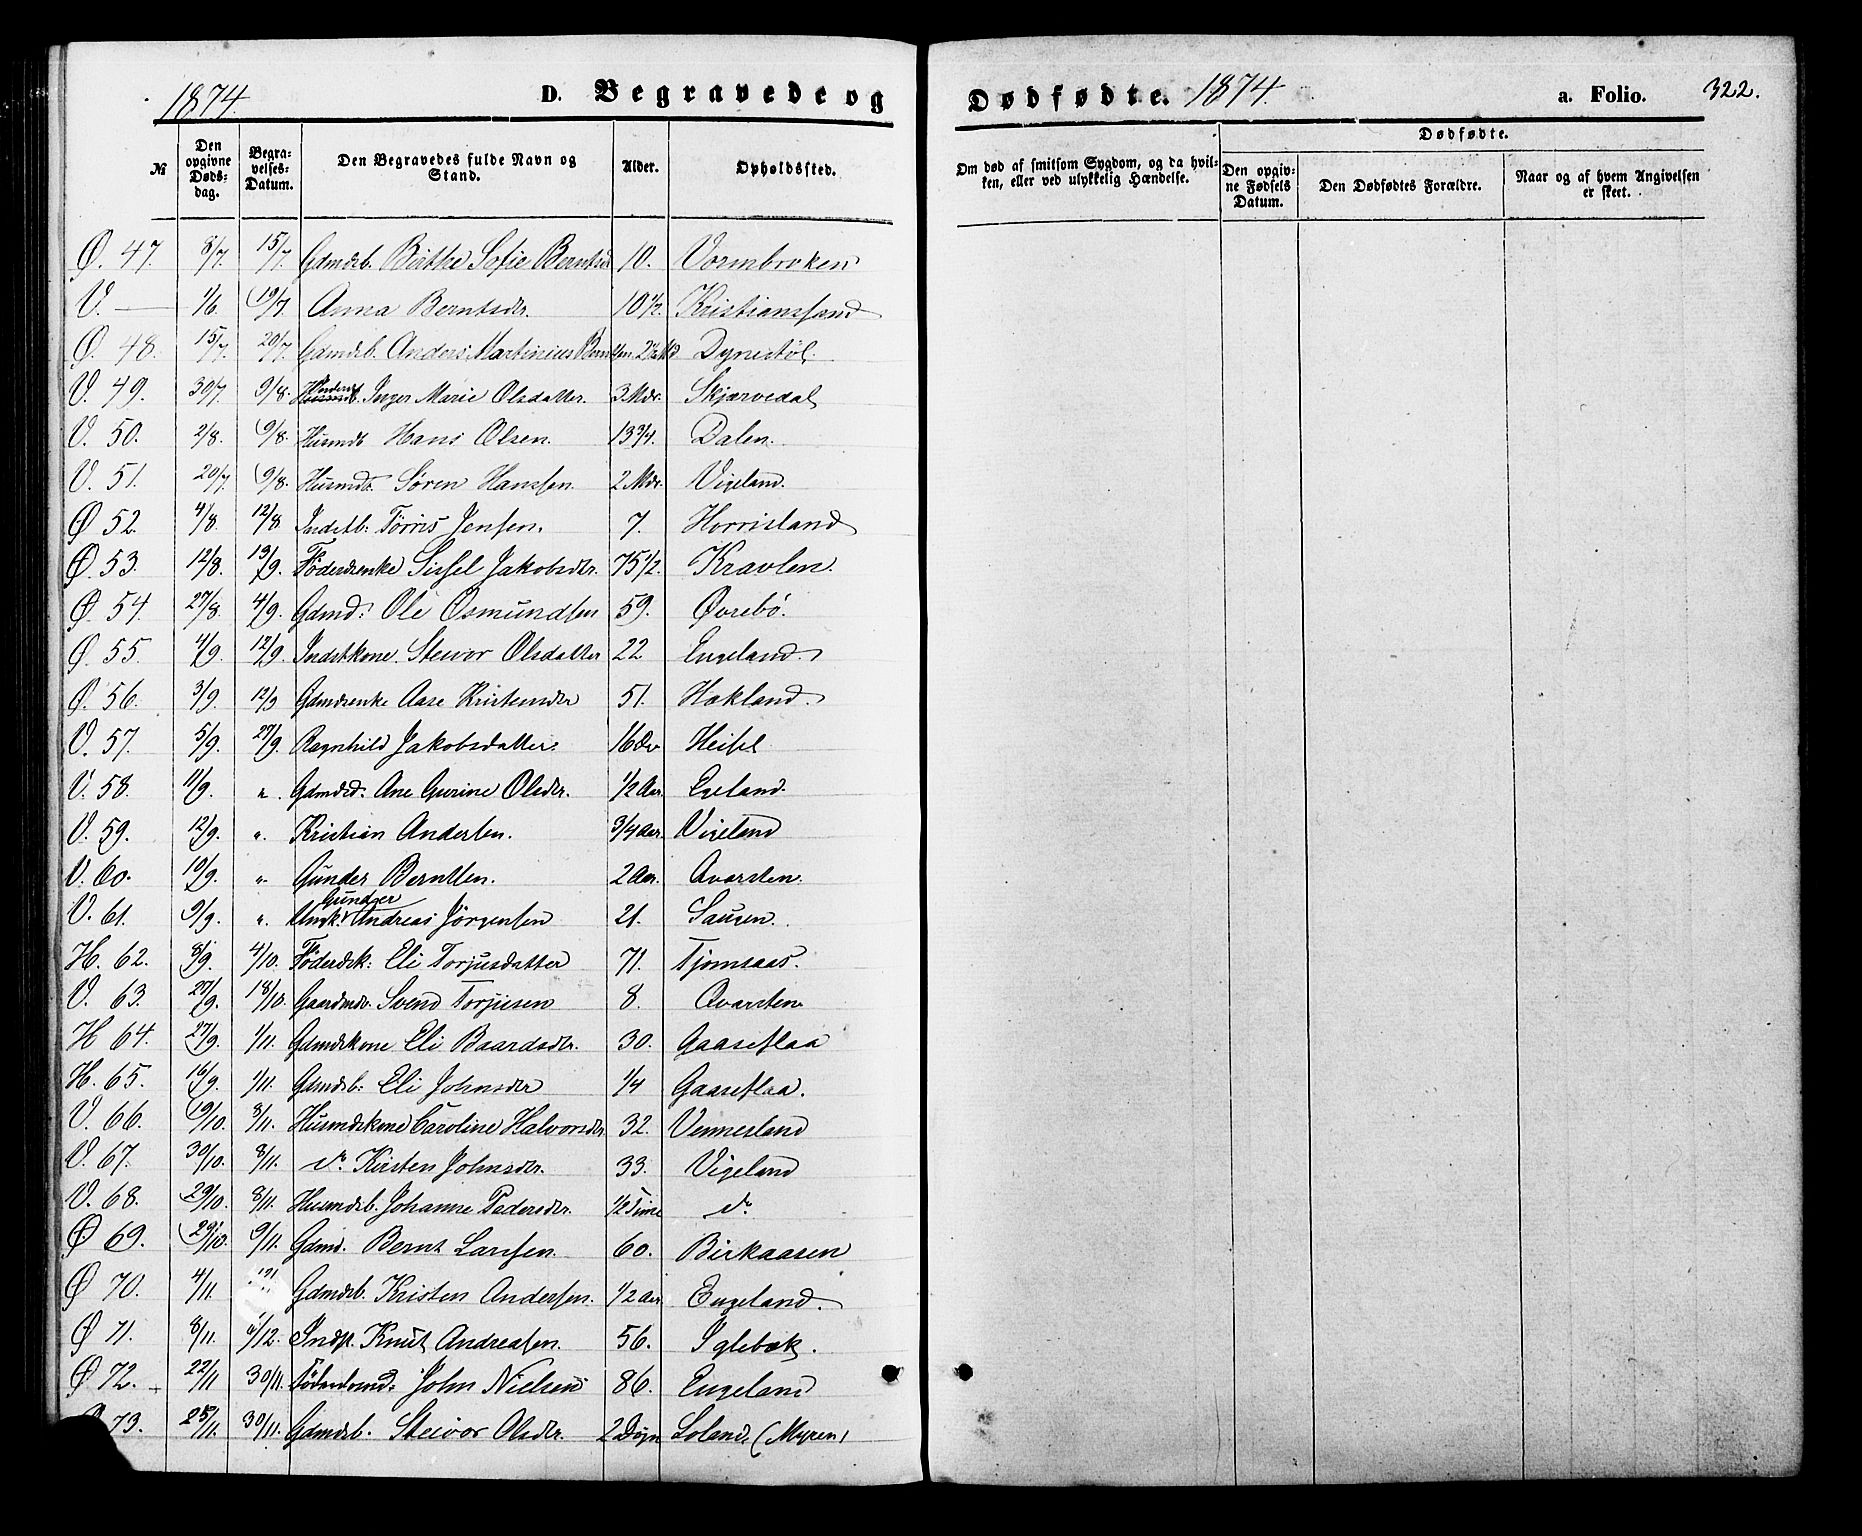 1874. D. Begravede og
№ Den opgivne Døds-dag. Begra-velses-Datum. Den Begravedes fulde Navn og Stand. Alder. Opholdssted.
Ø. 47. 8/7. 15/7 Gdmdsb. Birthe Sofie Berntsd 10. Vormbroken
V. — 1/6. 19/7 Anna Berntsdr. 10 1/2. Kristianssand
Ø. 48. 15/7. 20/7 Gdmdsb. Anders Martinius Dynestøl.
V. 49. 30/7. 9/8. Inderst Inger Marie Olsdatter. 3 Mdr. Skjærvedal
V. 50. 2/8. 9/8. Husmds Hans Olsen. 13 3/4. Dalen.
V. 51. 20/7 9/8. Husmds. Søren Hanssen. 2 Mdr. Vigeland.
Ø 52. 4/8. 12/8 Indstb. Tørres Jensen. 7. Horrisland
Ø. 53. 12/8. 13/9. Föderdsenke Sissel Jakobsdtr. 75 1/2. Kravlen.
Ø. 54. 27/8. 4/9. Gdmd: Ole Osmundsen 59. Øvrebø.
Ø. 55. 4/9. 12/9. Indstkone. Steivor Olsdatter 22 Engeland.
Ø. 56. 3/9. 12/9 Gdmdsenke Aase Kristensdr 51. Hakland.
V. 57. 5/9. 27/9. Ragnhild Jakobsdatter. Heisel
V. 58. 11/9. ". Gdmdsd. Ane Gurine Olsdr. 1/2 Aar. Egeland.
V. 59. 12/9. ". Kristian Andersen. 3/4 Aar. Vigeland
V. 60. 10/9. ". Gunder Berntsen. 2 Aar. Qvarsten.
Gunder
V. 61. 9/9. " Ungk: Andreas Jörgensen 21. Sausen.
H. 62. 8/9. 4/10. Föderdsk: Eli Torjusdatter 71. Tjomsaas.
V. 63. 27/9. 18/10. Gaardmds. Svend Torjusen 8. Qvarsten
H 64. 27/9. 1/11. Gdmdskone Eli Baardsdr. 30. Gaaseflaa
H. 65. 16/9. 1/11. Gdmdsb: Eli Johnsdr 1/4 Gaaseflaa.
V. 66. 19/10. 8/11. Husmdskone Caroline Halvorsdr. 32. Vennesland
V. 67. 30/10. 8/11. do. Kirsten Johnsdr. 33. Vigeland
V. 68. 29/10. 8/11. Husmdsb. Johanne Pedersdr. 1/2 Time do.
Ø 69. 29/10. 9/11. Gdmd. Bernt Larsen 60. Birkaasen
Ø 70. 4/11. Gdmdsb. Kristen Andersen. 1/2 Aar Engeland.
Ø 71. 8/11. 4/12. Indst. Knut Andreasen. 56. Iglebæk.
Ø 72. 22/11 30/11. Föderdsmd: John Nielsen 86. Engeland
73. 25/11. 30/11. Gdmdsb. Steivor Olsdr. 2 Døgn Loland, (Myren)
Dødfødte. 1874. a. Folio. 322.
Om død af smitsom Sygdom, og da hvil-ken, eller ved ulykkelig Hændelse. Dødfødte.
Den opgiv-ne Fødsels Datum. Den Dødfødtes Forældre. Naar og af hvem Angivelsen er skeet.